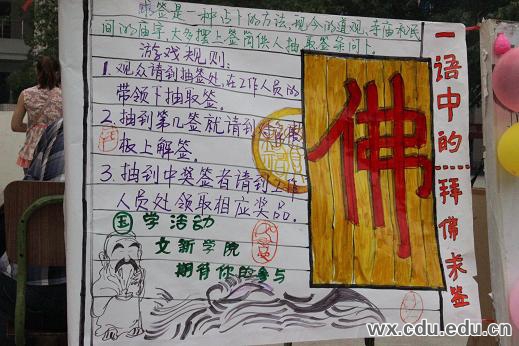 求签是一种占卜的方法,现今的道观,寺庙和民
间的庙宇,大多摆上签筒供人抽取签条问卜。
游戏规则:
1. 观众请到抽签处,在工作人员的
带领下抽取签。
2. 抽到第几签就请到
板上解签。
3. 抽到中奖签者请到工作
人员处领取相应奖品。
国学活动
文新学院
期待你的参与
佛
一语中的……拜佛求签
wx.cdu.edu.cn